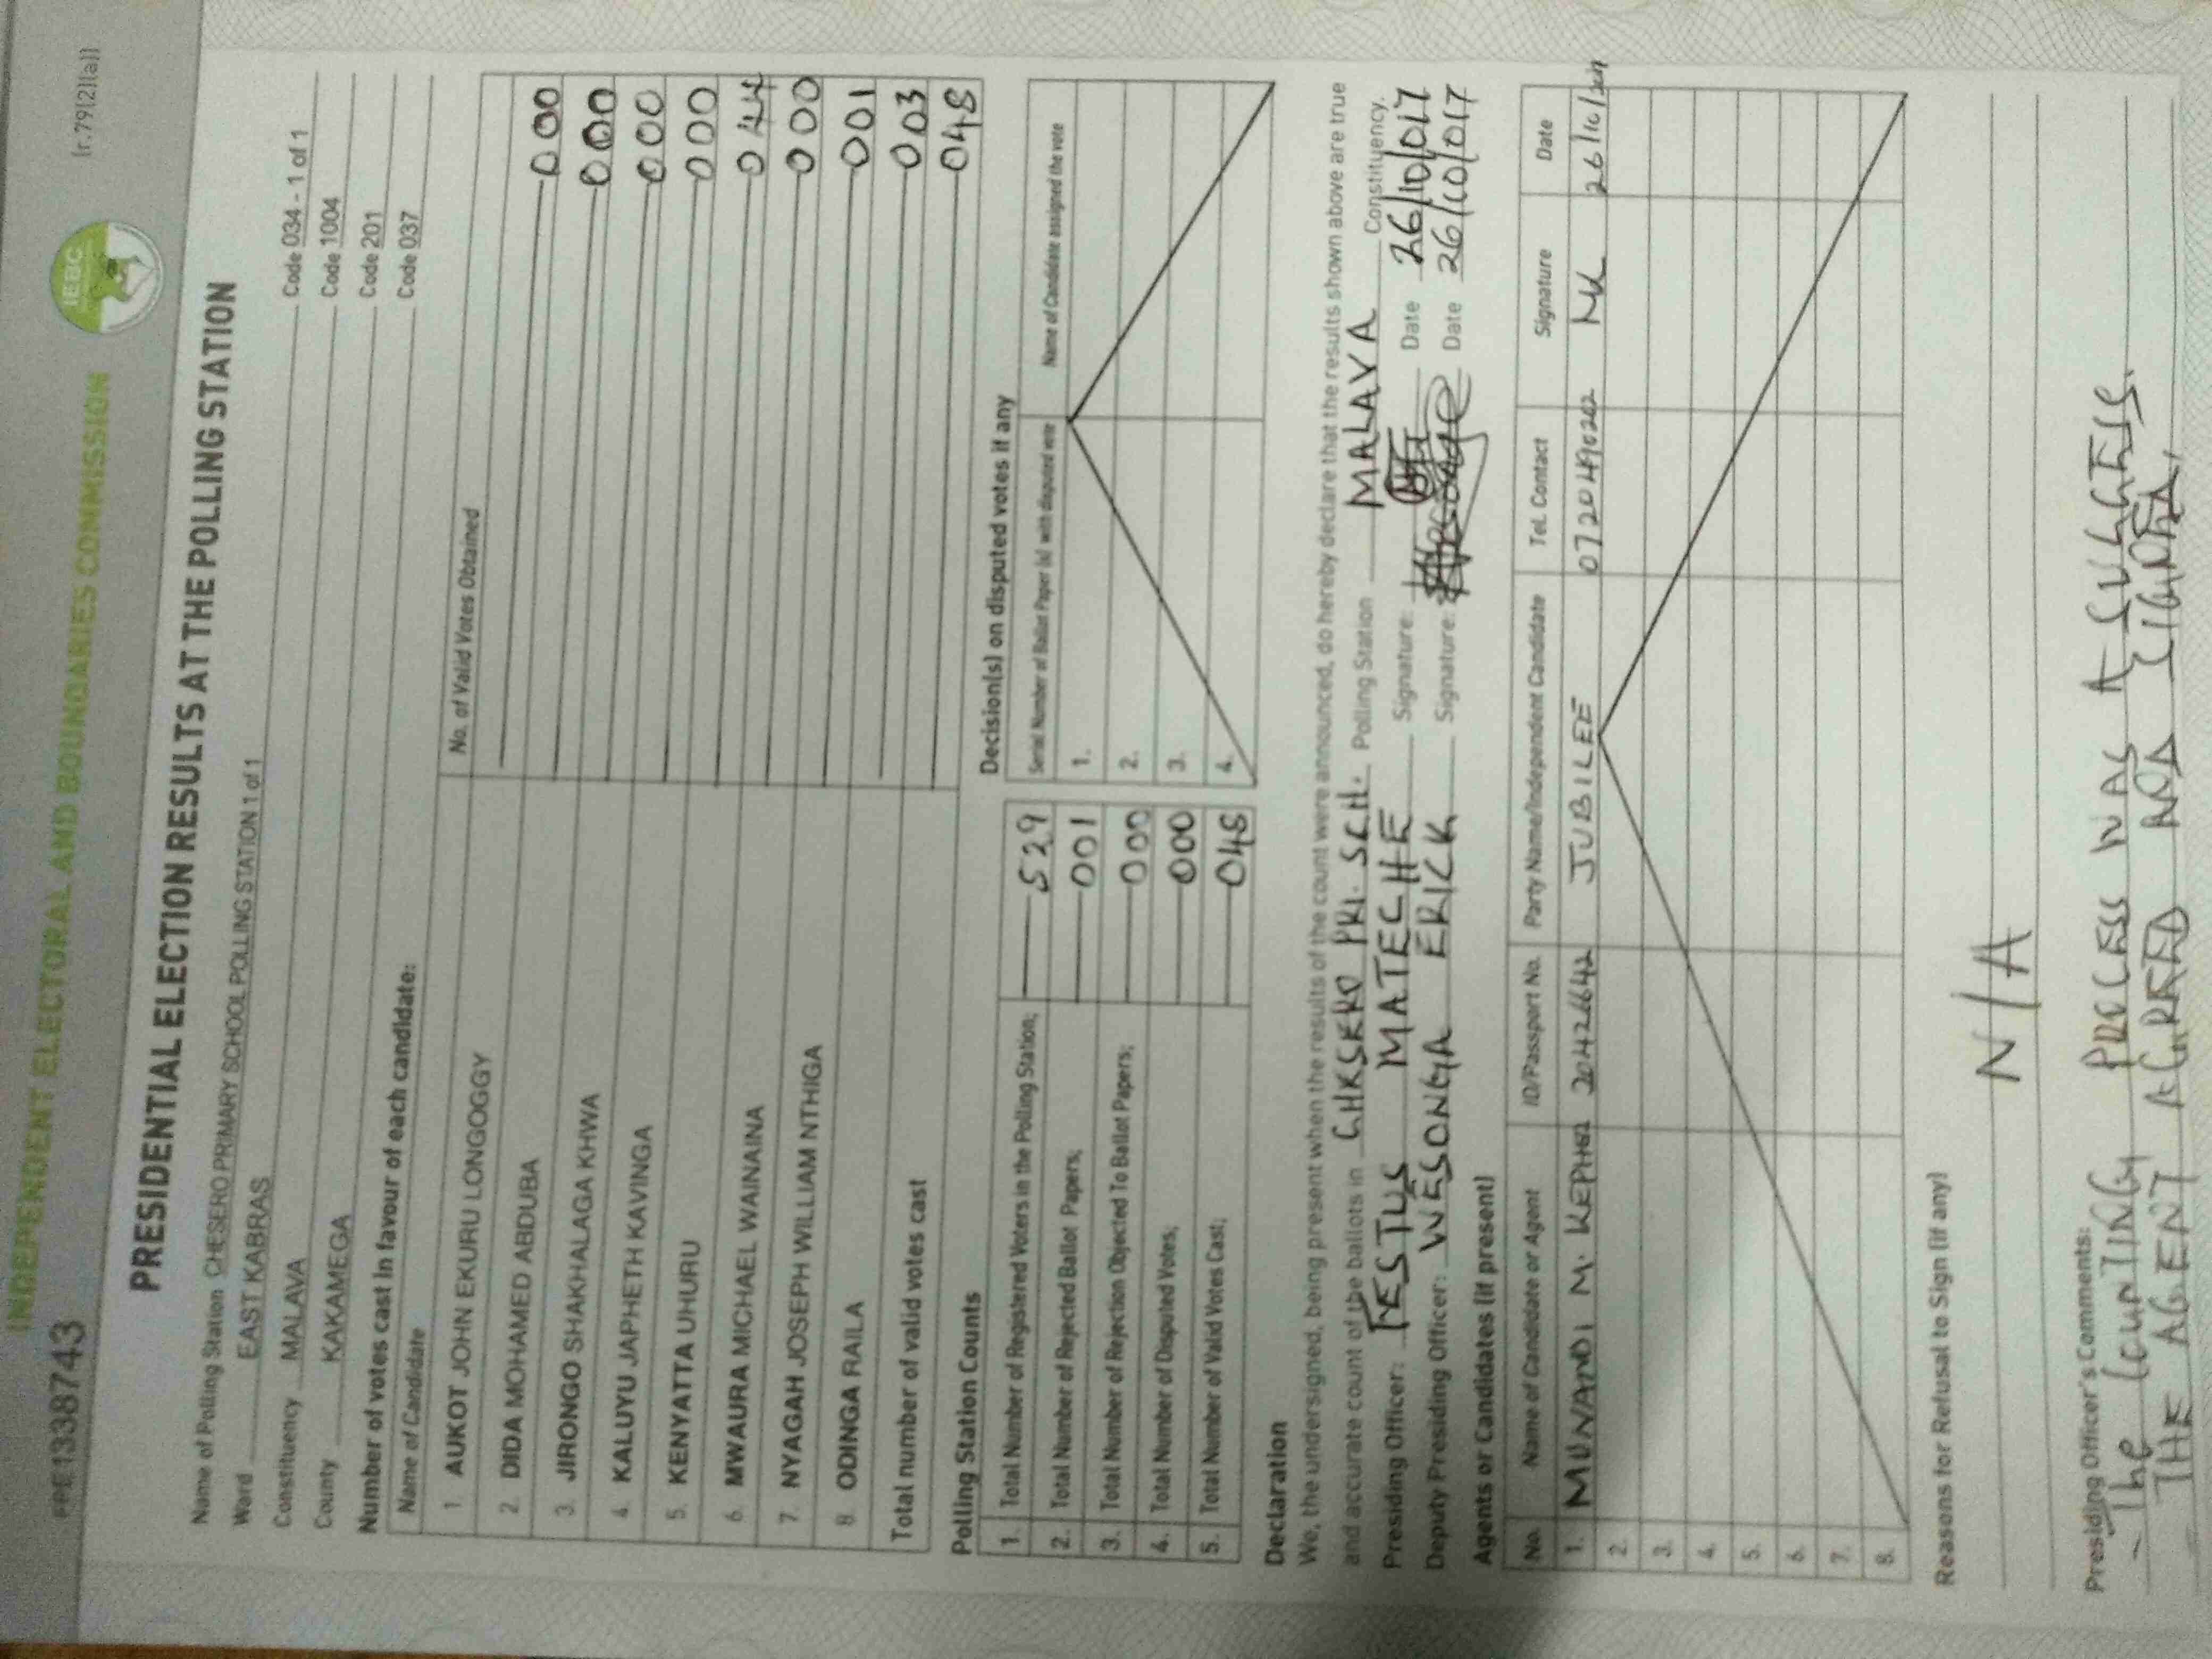 INDEPENDENT ELECTORAL AND BOUNDARIES COMMISSION
IEBC
(r.79(2)(a))
PRESIDENTIAL ELECTION RESULTS AT THE POLLING STATION
Name of Polling Station CHESERO PRIMARY SCHOOL POLLING STATION 1 of 1 Code 034 - 1 of 1
Ward EAST KABRAS Code 1004
Constituency MALAVA Code 201
County KAKAMEGA Code 037
Number of votes cast in favour of each candidate:
Name of Candidate No. of Valid Votes Obtained
1. AUKOT JOHN EKURU LONGOGGY 000
2. DIDA MOHAMED ABDUBA 000
3. JIRONGO SHAKHALAGA KHWA 000
4. KALUYU JAPHETH KAVINGA 000
5. KENYATTA UHURU 044
6. MWAURA MICHAEL WAINAINA 000
7. NYAGAH JOSEPH WILLIAM NTHIGA 001
8. ODINGA RAILA 003
Total number of valid votes cast 048
Polling Station Counts
1. Total Number of Registered Voters in the Polling Station; 529
2. Total Number of Rejected Ballot Papers; 001
3. Total Number of Rejection Objected To Ballot Papers; 000
4. Total Number of Disputed Votes; 000
5. Total Number of Valid Votes Cast; 048
Decision(s) on disputed votes if any
Serial Number of Ballot Paper (s) with disputed vote Name of Candidate assigned the vote
1.
2.
3.
4.
Declaration
We, the undersigned, being present when the results of the count were announced, do hereby declare that the results shown above are true
and accurate count of the ballots in CHESERO PRI. SCH. Polling Station MALAVA Constituency.
Presiding Officer: FESTUS MATECHE Signature: Date 26/10/017
Deputy Presiding Officer: WESONGA ERICK Signature: Date 26/10/017
Agents or Candidates (if present)
No. Name of Candidate or Agent ID/Passport No. Party Name/Independent Candidate Tel. Contact Signature Date
1. MUNANDI M. KEPHER 20426642 JUBILEE 0720490202 MK 26/10/2017
2.
3.
4.
5.
6.
7.
8.
Reasons for Refusal to Sign (if any)
N/A
Presiding Officer's Comments:
- The COUNTING PROCESS WAS A SUCCESS.
- THE AGENT AGREED AND SIGNED.